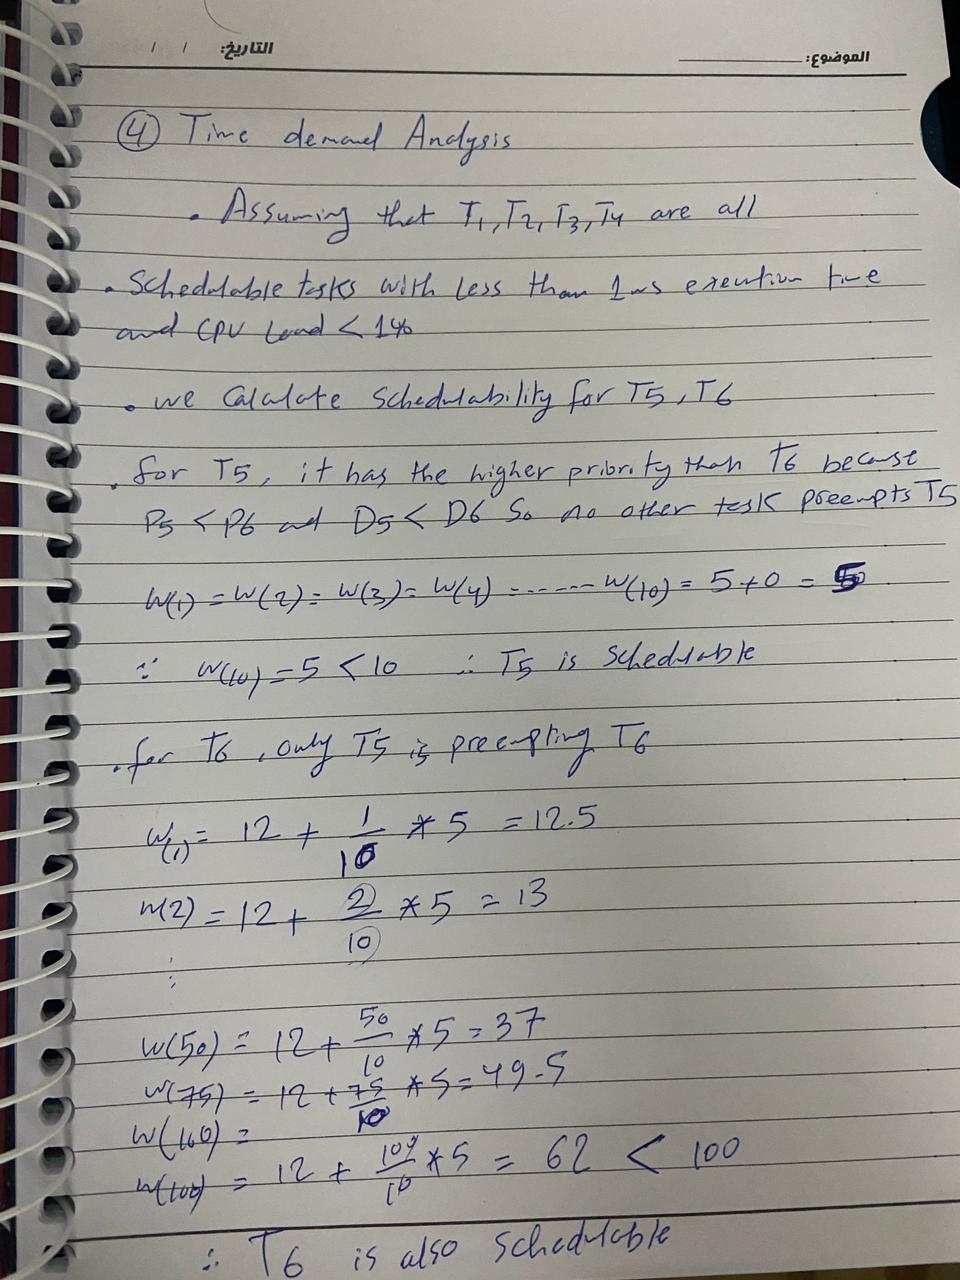 الموضوع: التاريخ: / /
④ Time demand Analysis
. Assuming that T1, T2, T3, T4 are all
. Schedulable tasks with less than 1ms execution time
and CPU Load < 1%
. we Calculate Schedulability for T5, T6
. for T5, it has the higher priority than T6 because
P5 < P6 and D5 < D6 So no other task preempts T5
W(1) = W(2) = W(3) = W(4) = ------ W(10) = 5 + 0 = 5
∵ W(10) = 5 < 10 ∴ T5 is Schedulable
. for T6, only T5 is preempting T6
W(1) = 12 + 1/10 * 5 = 12.5
W(2) = 12 + 2/10 * 5 = 13
⋮
W(50) = 12 + 50/10 * 5 = 37
W(75) = 12 + 75/10 * 5 = 49.5
W(100) =
W(100) = 12 + 100/10 * 5 = 62 < 100
∴ T6 is also schedulable